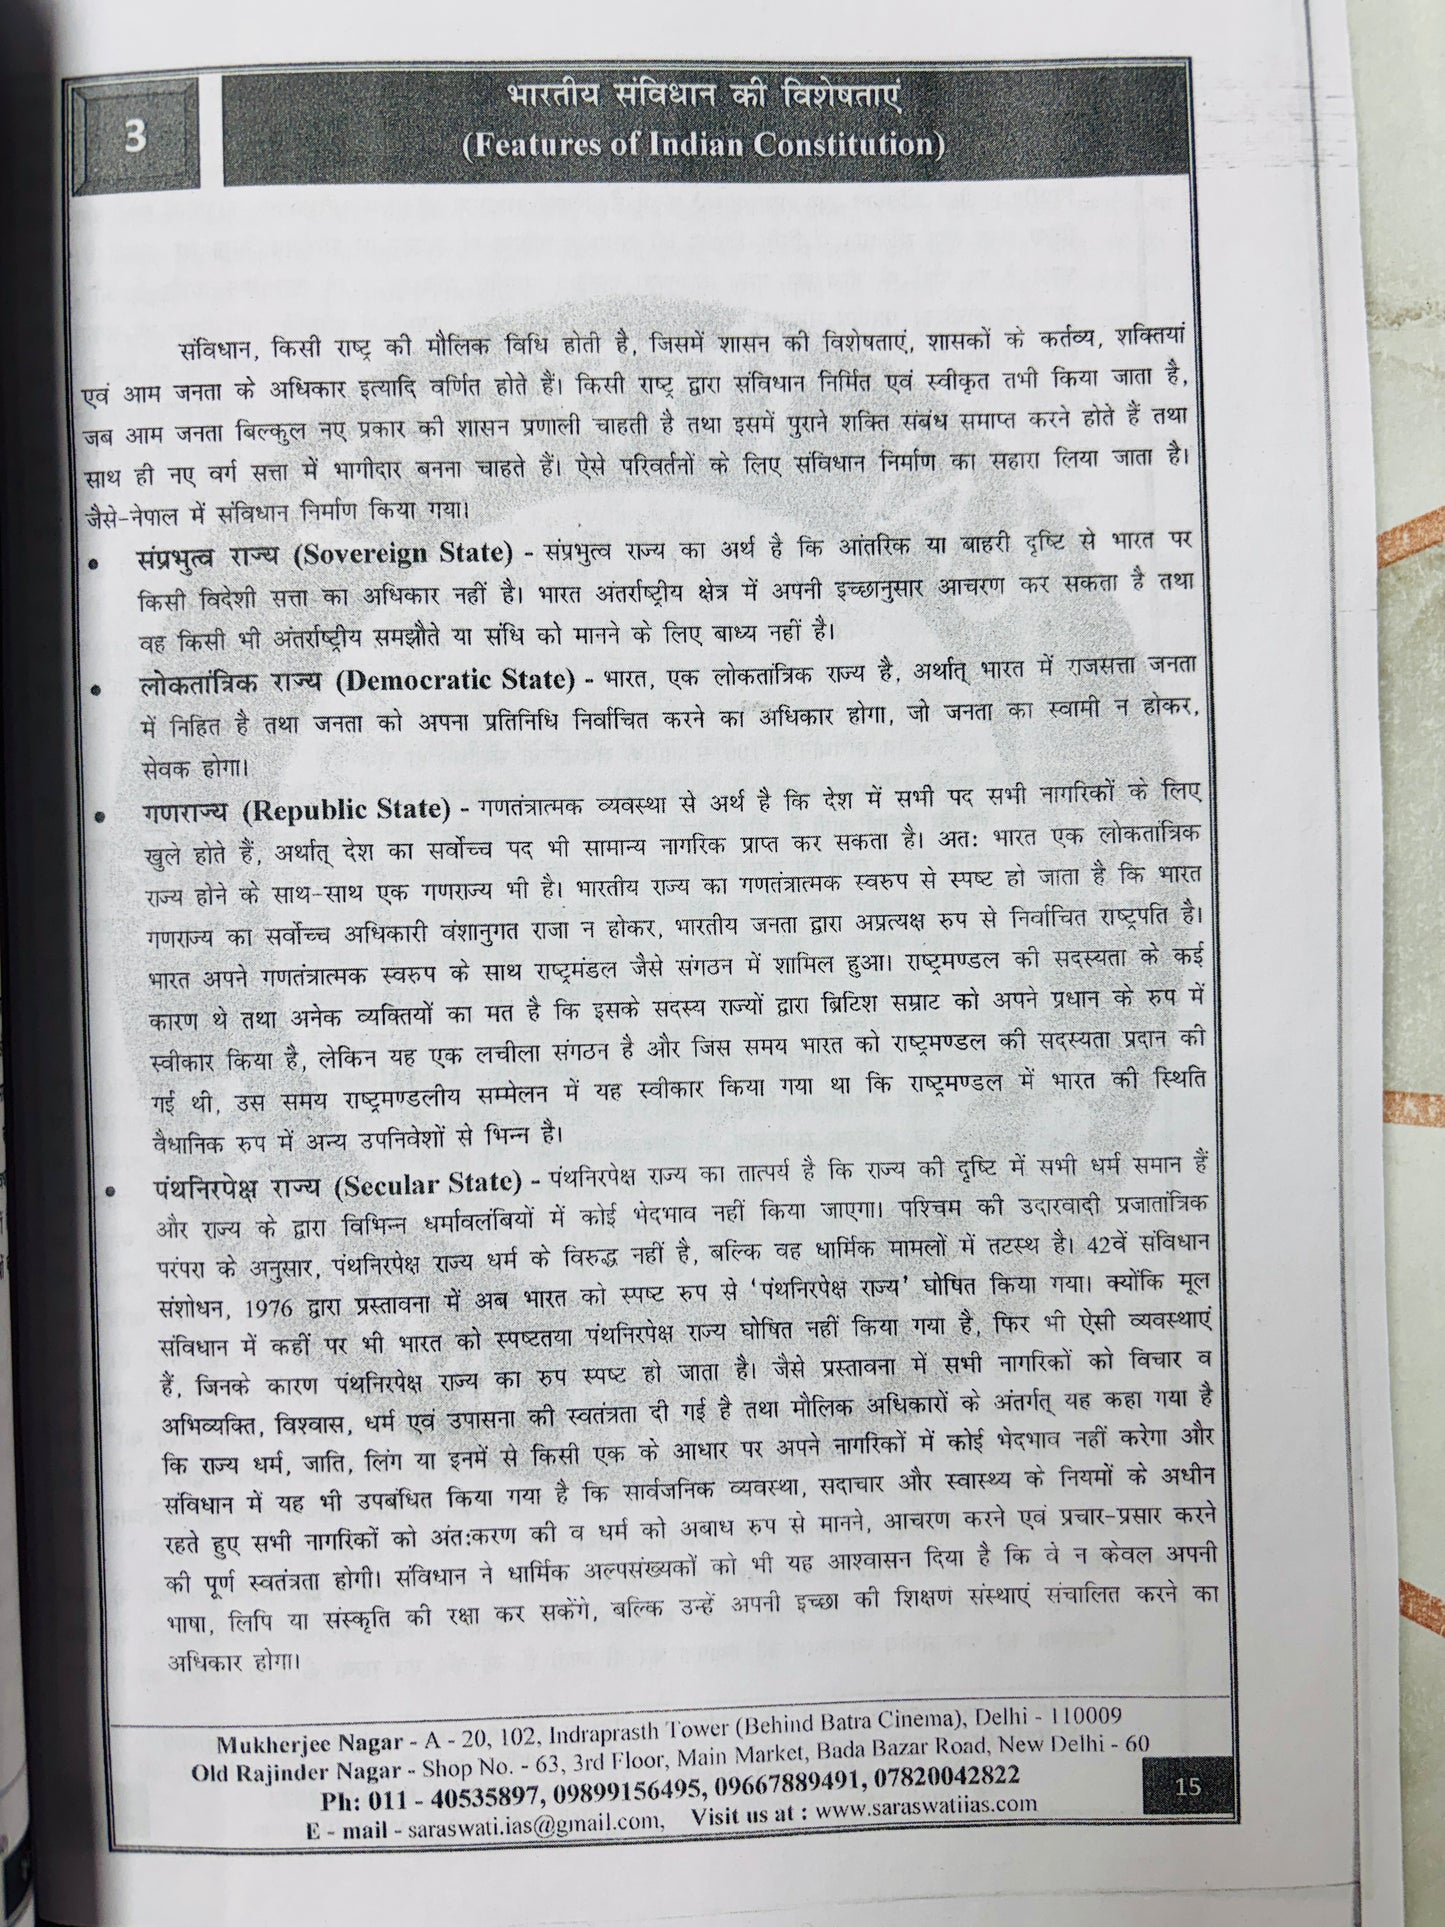 3
भारतीय संविधान की विशेषताएं
(Features of Indian Constitution)
संविधान, किसी राष्ट्र की मौलिक विधि होती है, जिसमें शासन की विशेषताएं, शासकों के कर्तव्य, शक्तियां
एवं आम जनता के अधिकार इत्यादि वर्णित होते हैं। किसी राष्ट्र द्वारा संविधान निर्मित एवं स्वीकृत तभी किया जाता है,
जब आम जनता बिल्कुल नए प्रकार की शासन प्रणाली चाहती है तथा इसमें पुराने शक्ति संबंध समाप्त करने होते हैं तथा
साथ ही नए वर्ग सत्ता में भागीदार बनना चाहते हैं। ऐसे परिवर्तनों के लिए संविधान निर्माण का सहारा लिया जाता है।
जैसे-नेपाल में संविधान निर्माण किया गया।
• संप्रभुत्व राज्य (Sovereign State) - संप्रभुत्व राज्य का अर्थ है कि आंतरिक या बाहरी दृष्टि से भारत पर
किसी विदेशी सत्ता का अधिकार नहीं है। भारत अंतर्राष्ट्रीय क्षेत्र में अपनी इच्छानुसार आचरण कर सकता है तथा
वह किसी भी अंतर्राष्ट्रीय समझौते या संधि को मानने के लिए बाध्य नहीं है।
• लोकतांत्रिक राज्य (Democratic State) - भारत, एक लोकतांत्रिक राज्य है, अर्थात् भारत में राजसत्ता जनता
में निहित है तथा जनता को अपना प्रतिनिधि निर्वाचित करने का अधिकार होगा, जो जनता का स्वामी न होकर,
सेवक होगा।
• गणराज्य (Republic State) - गणतंत्रात्मक व्यवस्था से अर्थ है कि देश में सभी पद सभी नागरिकों के लिए
खुले होते हैं, अर्थात् देश का सर्वोच्च पद भी सामान्य नागरिक प्राप्त कर सकता है। अतः भारत एक लोकतांत्रिक
राज्य होने के साथ-साथ एक गणराज्य भी है। भारतीय राज्य का गणतंत्रात्मक स्वरुप से स्पष्ट हो जाता है कि भारत
गणराज्य का सर्वोच्च अधिकारी वंशानुगत राजा न होकर, भारतीय जनता द्वारा अप्रत्यक्ष रुप से निर्वाचित राष्ट्रपति है।
भारत अपने गणतंत्रात्मक स्वरुप के साथ राष्ट्रमंडल जैसे संगठन में शामिल हुआ। राष्ट्रमण्डल की सदस्यता के कई
कारण थे तथा अनेक व्यक्तियों का मत है कि इसके सदस्य राज्यों द्वारा ब्रिटिश सम्राट को अपने प्रधान के रुप में
स्वीकार किया है, लेकिन यह एक लचीला संगठन है और जिस समय भारत को राष्ट्रमण्डल की सदस्यता प्रदान की
गई थी, उस समय राष्ट्रमण्डलीय सम्मेलन में यह स्वीकार किया गया था कि राष्ट्रमण्डल में भारत की स्थिति
वैधानिक रुप में अन्य उपनिवेशों से भिन्न है।
• पंथनिरपेक्ष राज्य (Secular State) - पंथनिरपेक्ष राज्य का तात्पर्य है कि राज्य की दृष्टि में सभी धर्म समान हैं
और राज्य के द्वारा विभिन्न धर्मावलंबियों में कोई भेदभाव नहीं किया जाएगा। पश्चिम की उदारवादी प्रजातांत्रिक
परंपरा के अनुसार, पंथनिरपेक्ष राज्य धर्म के विरुद्ध नहीं है, बल्कि वह धार्मिक मामलों में तटस्थ है। 42वें संविधान
संशोधन, 1976 द्वारा प्रस्तावना में अब भारत को स्पष्ट रुप से ‘पंथनिरपेक्ष राज्य’ घोषित किया गया। क्योंकि मूल
संविधान में कहीं पर भी भारत को स्पष्टतया पंथनिरपेक्ष राज्य घोषित नहीं किया गया है, फिर भी ऐसी व्यवस्थाएं
हैं, जिनके कारण पंथनिरपेक्ष राज्य का रुप स्पष्ट हो जाता है। जैसे प्रस्तावना में सभी नागरिकों को विचार व
अभिव्यक्ति, विश्वास, धर्म एवं उपासना की स्वतंत्रता दी गई है तथा मौलिक अधिकारों के अंतर्गत् यह कहा गया है
कि राज्य धर्म, जाति, लिंग या इनमें से किसी एक के आधार पर अपने नागरिकों में कोई भेदभाव नहीं करेगा और
संविधान में यह भी उपबंधित किया गया है कि सार्वजनिक व्यवस्था, सदाचार और स्वास्थ्य के नियमों के अधीन
रहते हुए सभी नागरिकों को अंतःकरण की व धर्म को अबाध रुप से मानने, आचरण करने एवं प्रचार-प्रसार करने
की पूर्ण स्वतंत्रता होगी। संविधान ने धार्मिक अल्पसंख्यकों को भी यह आश्वासन दिया है कि वे न केवल अपनी
भाषा, लिपि या संस्कृति की रक्षा कर सकेंगे, बल्कि उन्हें अपनी इच्छा की शिक्षण संस्थाएं संचालित करने का
अधिकार होगा।
Mukherjee Nagar - A - 20, 102, Indraprasth Tower (Behind Batra Cinema), Delhi - 110009
Old Rajinder Nagar - Shop No. - 63, 3rd Floor, Main Market, Bada Bazar Road, New Delhi - 60
Ph: 011 - 40535897, 09899156495, 09667889491, 07820042822
E - mail - saraswati.ias@gmail.com, Visit us at : www.saraswatiias.com
15